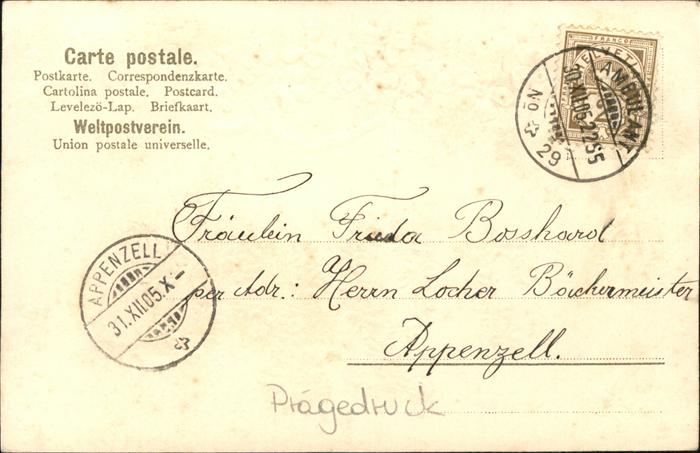 Carte postale.
Postkarte. Correspondenzkarte.
Cartolina postale. Postcard.
Levelező-Lap. Briefkaart.
Weltpostverein.
Union postale universelle.
FRANCO
HELVETIA
AMBULANT
30.XII.05.2255
No 29
Fräulein Frieda Bosshard
per Adr.: Herrn Locher Bäckermeister
Appenzell.
APPENZELL
31.XII.05.X-
Prägedruck